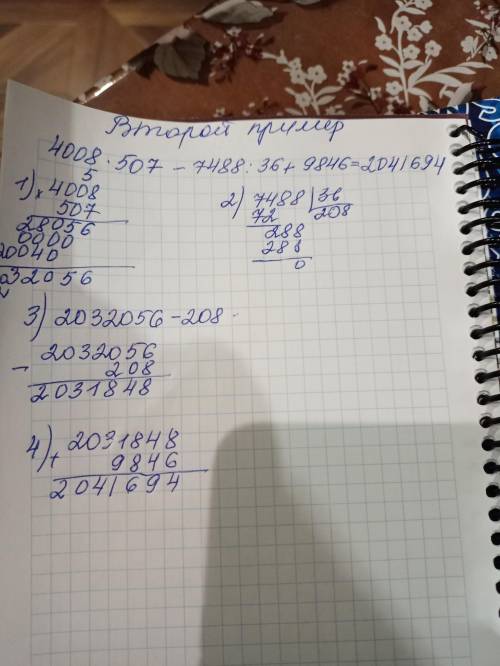 Второй пример
4008 · 507 - 7488 : 36 + 9846 = 2041694
5
1) × 4008
507
28056
0000
20040
032056
2) 7488 | 36
72 208
288
288
0
3) 2032056 - 208
- 2032056
208
2031848
4) + 2031848
9846
2041694